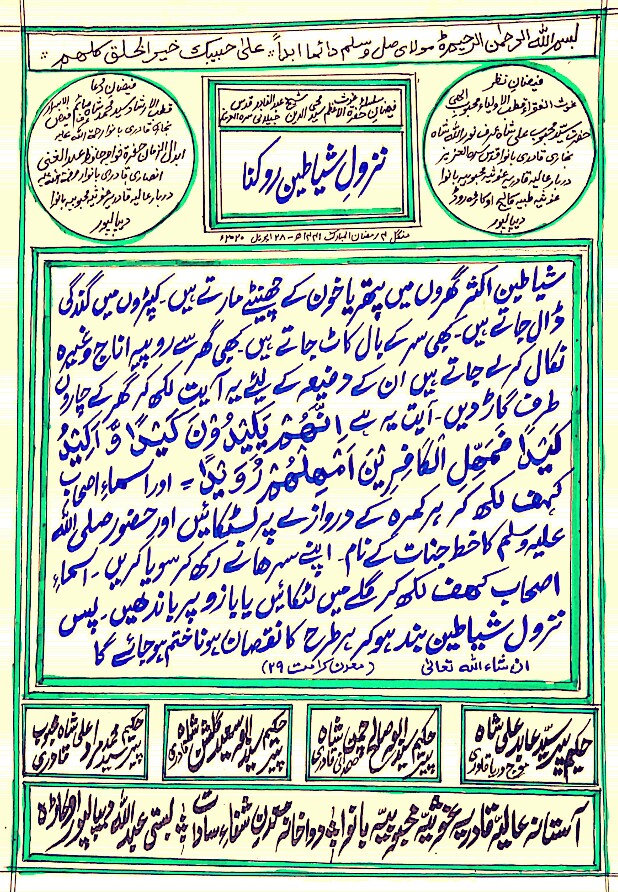 بسم اللہ الرحمٰن الرحیم ۵ مولای صل وسلم دائما ابداً علیٰ حبیبک خیر الخلق کلہم
فیضانِ نظر
غوث الفقراء قطب الاولیاء محبوب الٰہی
حضرت سید محبوب علی شاہ عرف نور اللہ شاہ
بخاری قادری بانوا قدس سرہ العزیز
دربار عالیہ قادریہ غوثیہ محبوبیہ بانوا
غوثیہ طبیہ کالج اوکاڑہ روڈ
دیپالپور
سلسلہ غوث
فیضانِ حضور غوث الاعظم سید محی الدین شیخ عبدالقادر جیلانی قدس سرہ العزیز
نزولِ شیاطین روکنا
فیضانِ دعا
قطب الارشاد سید محمد شاہ
بخاری قادری بانوا رحمۃ اللہ علیہ
ابدال الزماں حافظ عبد الغنی
انصاری قادری بانوا
دربار عالیہ قادریہ غوثیہ محبوبیہ بانوا
دیپالپور
منگل ۴ رمضان المبارک ۱۴۴۱ھ - ۲۸ اپریل ۲۰۲۰ء
شیاطین اکثر گھروں میں پتھر یا خون کے چھینٹے مارتے ہیں۔ کپڑوں میں گندگی
ڈال جاتے ہیں۔ کبھی سر کے بال کاٹ جاتے ہیں۔ کبھی گھر سے روپیہ اناج وغیرہ
نکال کر لے جاتے ہیں ان کے دفیعہ کے لیئے یہ آیت لکھ کر گھر کے چاروں
طرف گاڑ دیں۔ آیت یہ ہے اِنَّھُمْ یَکِیْدُوْنَ کَیْدًا وَّ اَکِیْدُ
کَیْدًا فَمَھِّلِ الْکَافِرِیْنَ اَمْھِلْھُمْ رُوَیْدًا = اور اسماء اصحاب
کہف لکھ کر ہر کمرہ کے دروازے پر لٹکائیں اور حضور صلی اللہ
علیہ وسلم کا خط جنات کے نام۔ اپنے سرھانے رکھ کر سویا کریں۔ اسماء
اصحاب کھف لکھ کر گلے میں لٹکائیں یا بازو پر باندھیں۔ پس
نزول شیاطین بند ہو کر ہر طرح کا نقصان ہونا ختم ہو جائے گا
ان شاء اللہ تعالیٰ (معدن کرامت ۲۹)
حکیم پیر سید عابد علی شاہ
حکیم پیر سید ابو صالح چمن شاہ صمدانی قادری
حکیم پیر سید ابو سعید گلشن شاہ قادری
حکیم پیر سید محمد مراد علی شاہ محبوب قادری
آستانہ عالیہ قادریہ غوثیہ محبوبیہ بانوا دواخانہ معدنِ شفاءِ سادات بستی عبد اللہ دیپالپور اوکاڑہ